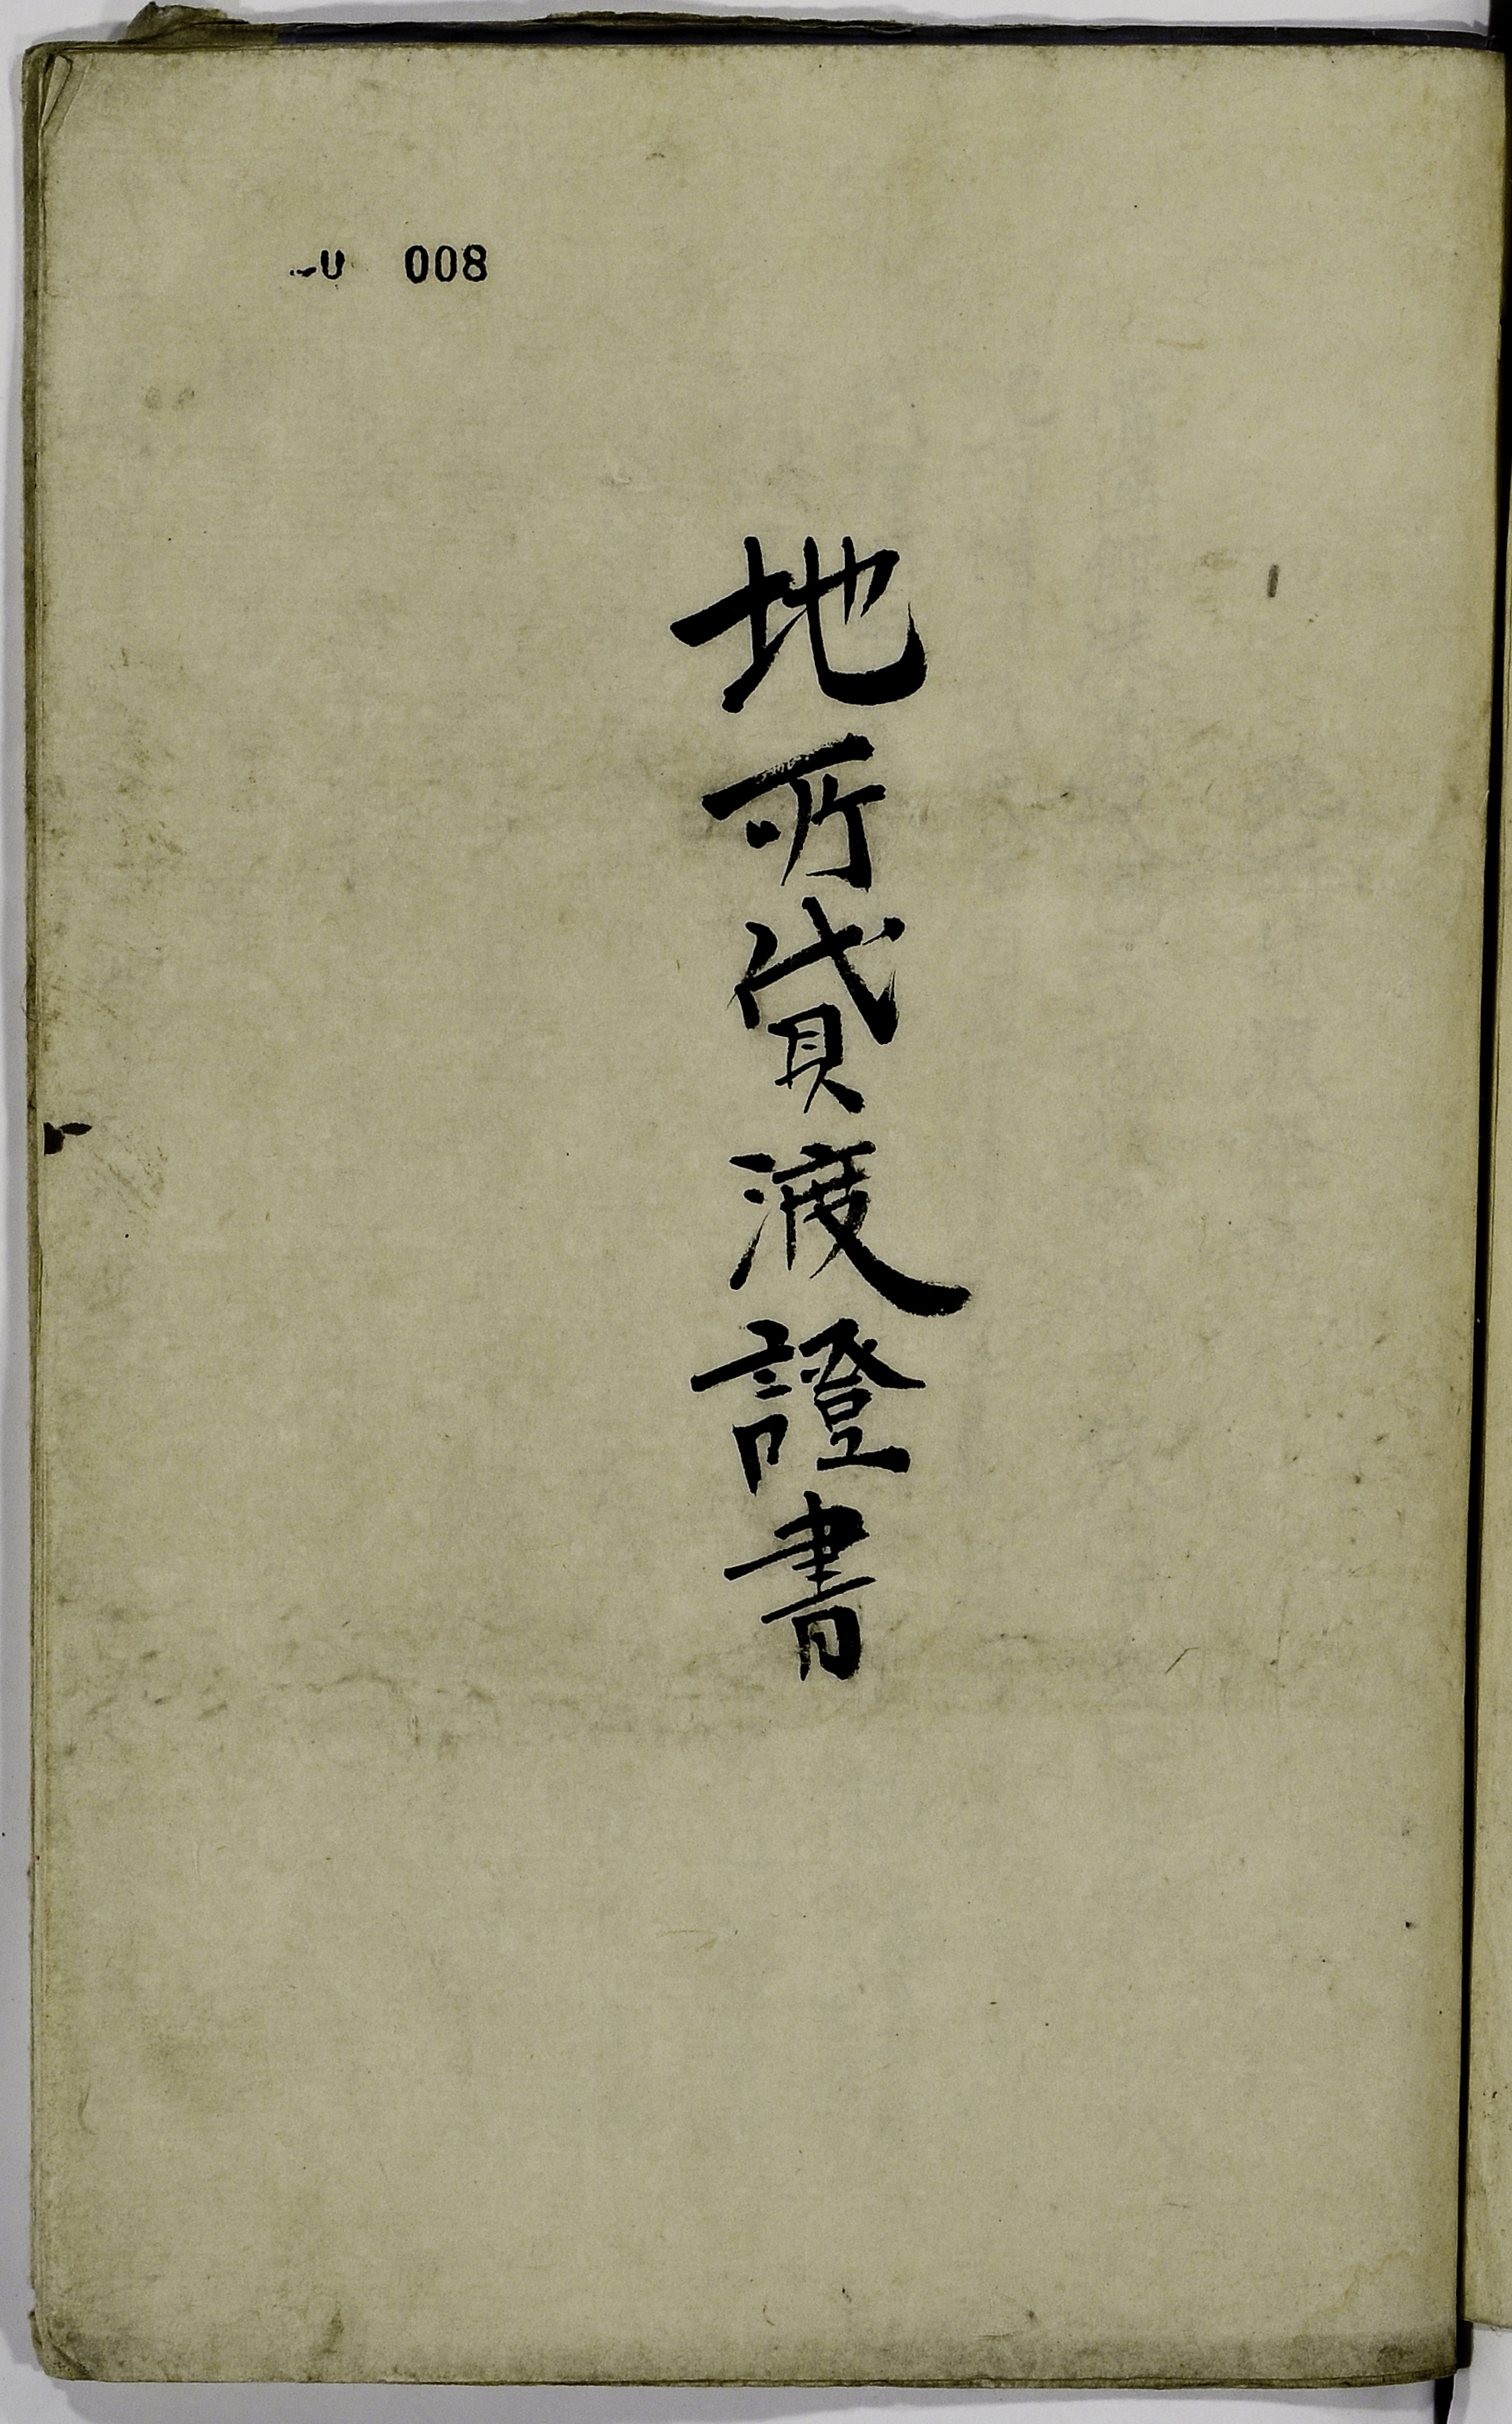 008
地所貸渡證書